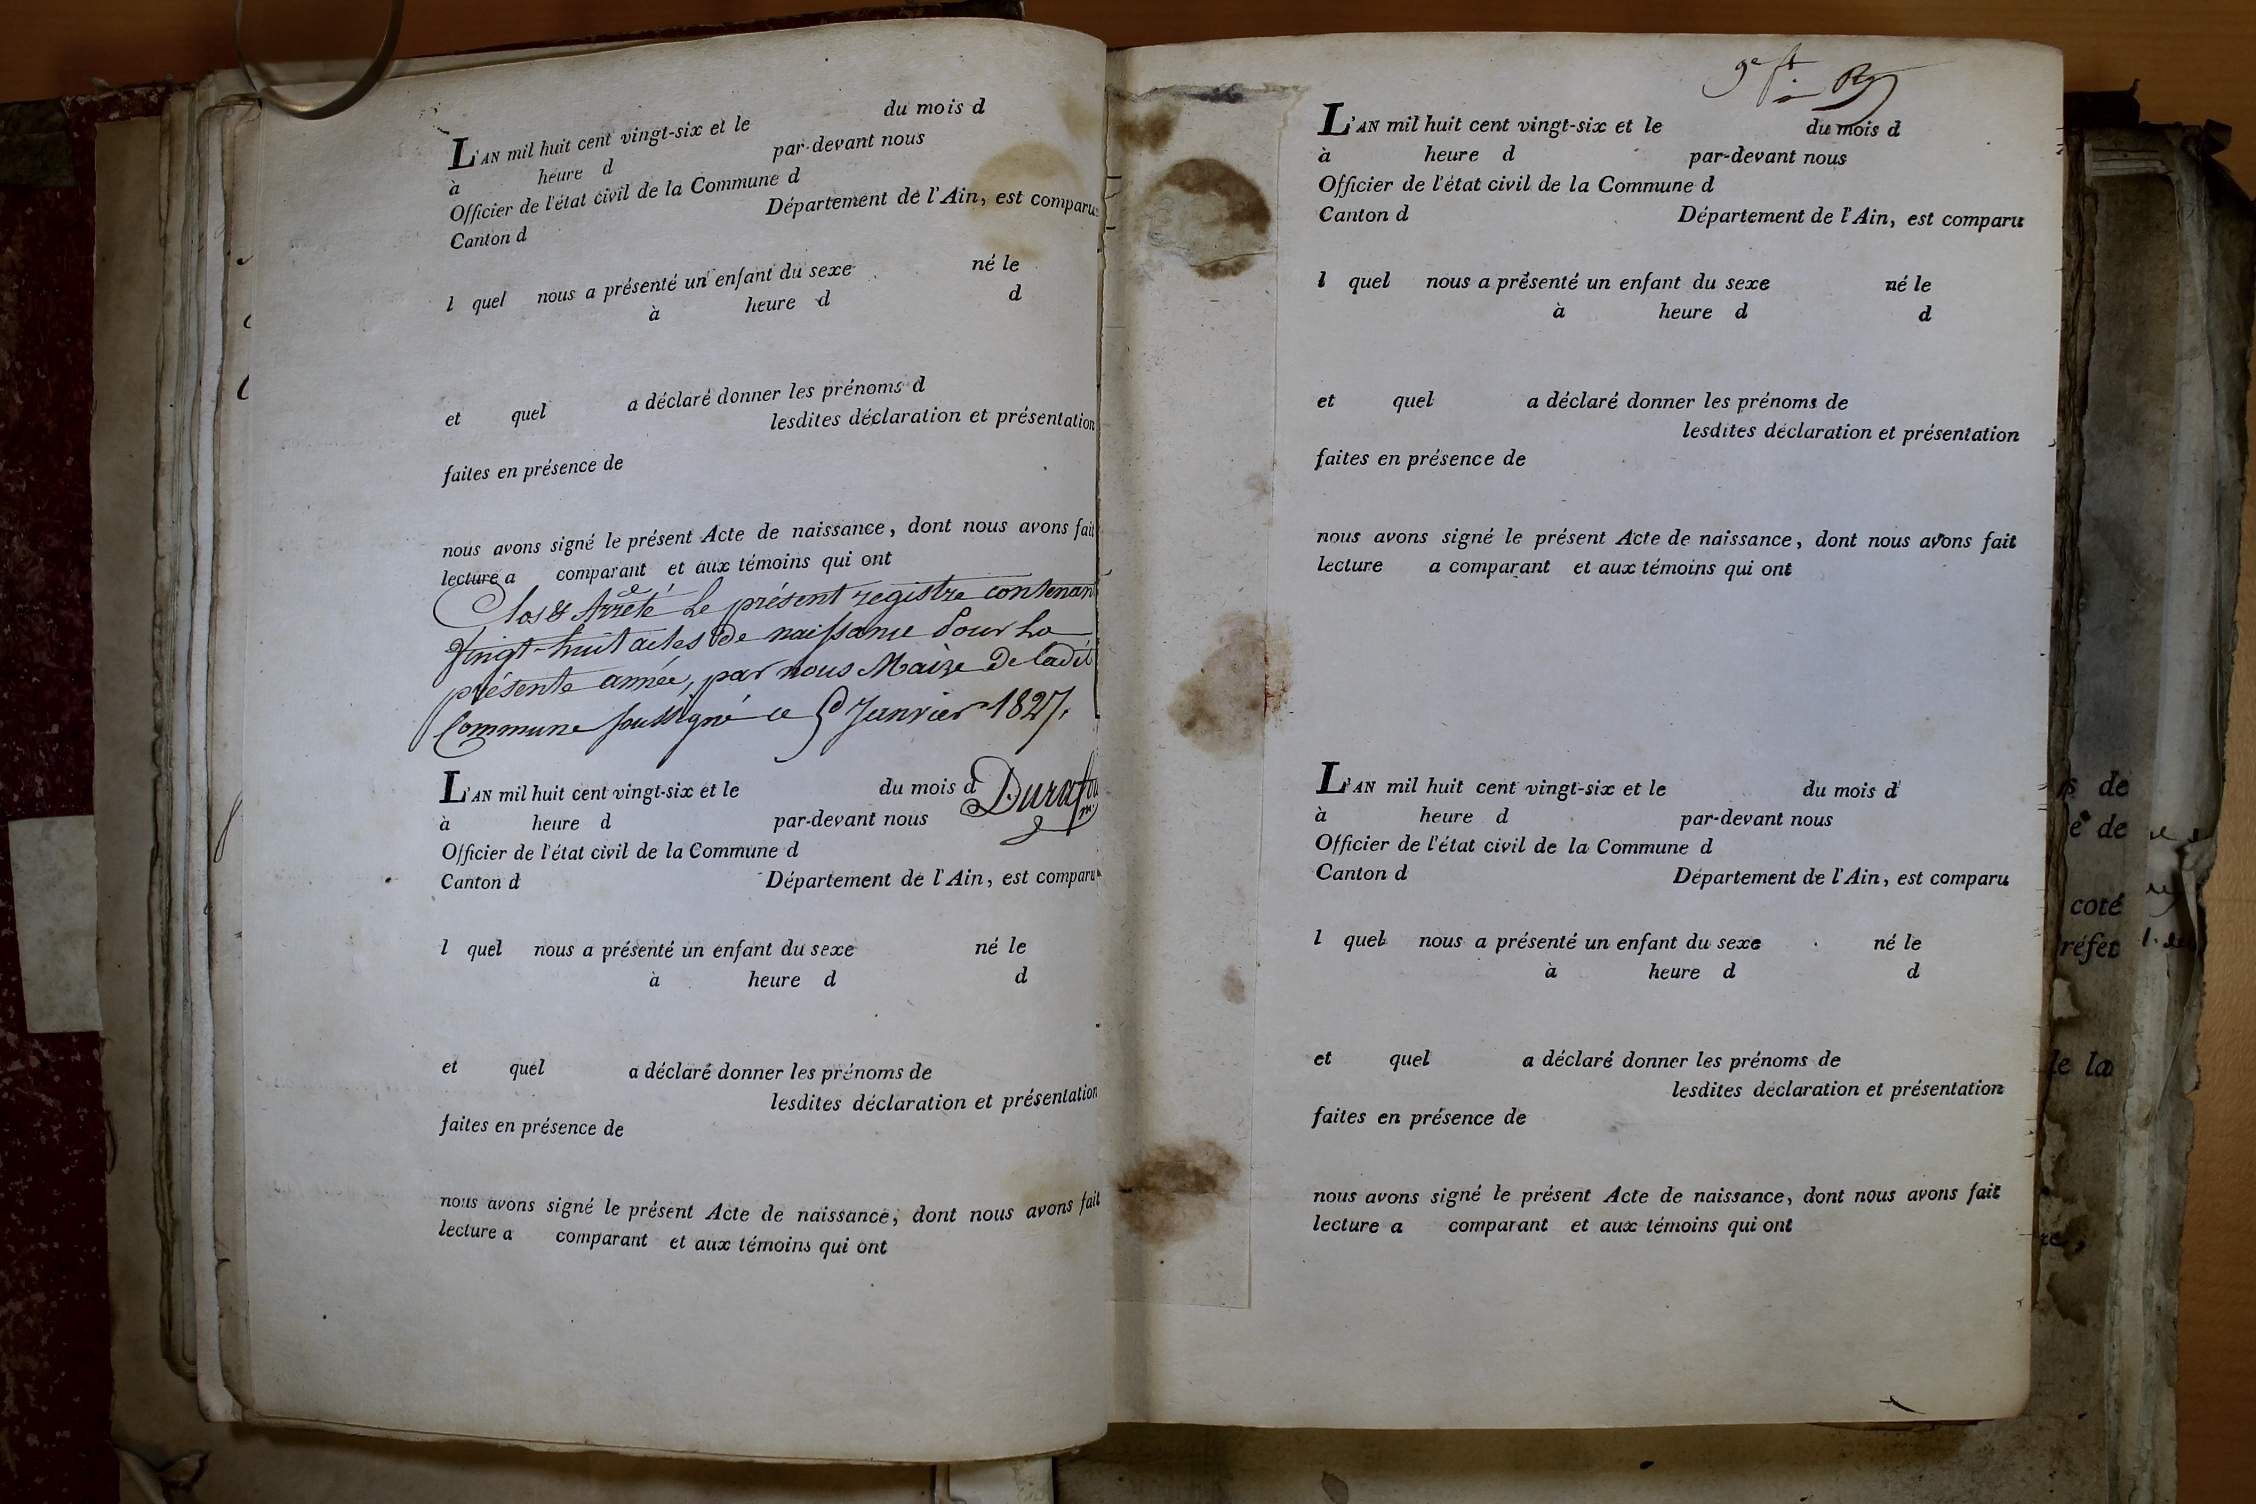 L'AN mil huit cent vingt-six et le du mois d
à heure d par-devant nous
Officier de l'état civil de la Commune d
Canton d Département de l'Ain, est comparu
l quel nous a présenté un enfant du sexe né le
à heure d d
et quel a déclaré donner les prénoms d
lesdites déclaration et présentation
faites en présence de
nous avons signé le présent Acte de naissance, dont nous avons fait
lecture a comparant et aux témoins qui ont
Clos & Arrêté Le présent registre contenant
Vingt-huit actes de naissance Pour La
présente année, par nous Maire De Ladit
Commune soussigné ce Janvier 1827.
L'AN mil huit cent vingt-six et le du mois d
à heure d par-devant nous
Officier de l'état civil de la Commune d
Canton d Département de l'Ain, est comparu
l quel nous a présenté un enfant du sexe né le
à heure d d
et quel a déclaré donner les prénoms de
lesdites déclaration et présentation
faites en présence de
nous avons signé le présent Acte de naissance, dont nous avons fait
lecture a comparant et aux témoins qui ont
L'AN mil huit cent vingt-six et le du mois d
à heure d par-devant nous
Officier de l'état civil de la Commune d
Canton d Département de l'Ain, est comparu
l quel nous a présenté un enfant du sexe né le
à heure d d
et quel a déclaré donner les prénoms de
lesdites déclaration et présentation
faites en présence de
nous avons signé le présent Acte de naissance, dont nous avons fait
lecture a comparant et aux témoins qui ont
L'AN mil huit cent vingt-six et le du mois d
à heure d par-devant nous
Officier de l'état civil de la Commune d
Canton d Département de l'Ain, est comparu
l quel nous a présenté un enfant du sexe né le
à heure d d
et quel a déclaré donner les prénoms de
lesdites déclaration et présentation
faites en présence de
nous avons signé le présent Acte de naissance, dont nous avons fait
lecture a comparant et aux témoins qui ont
de
de
coté
le la